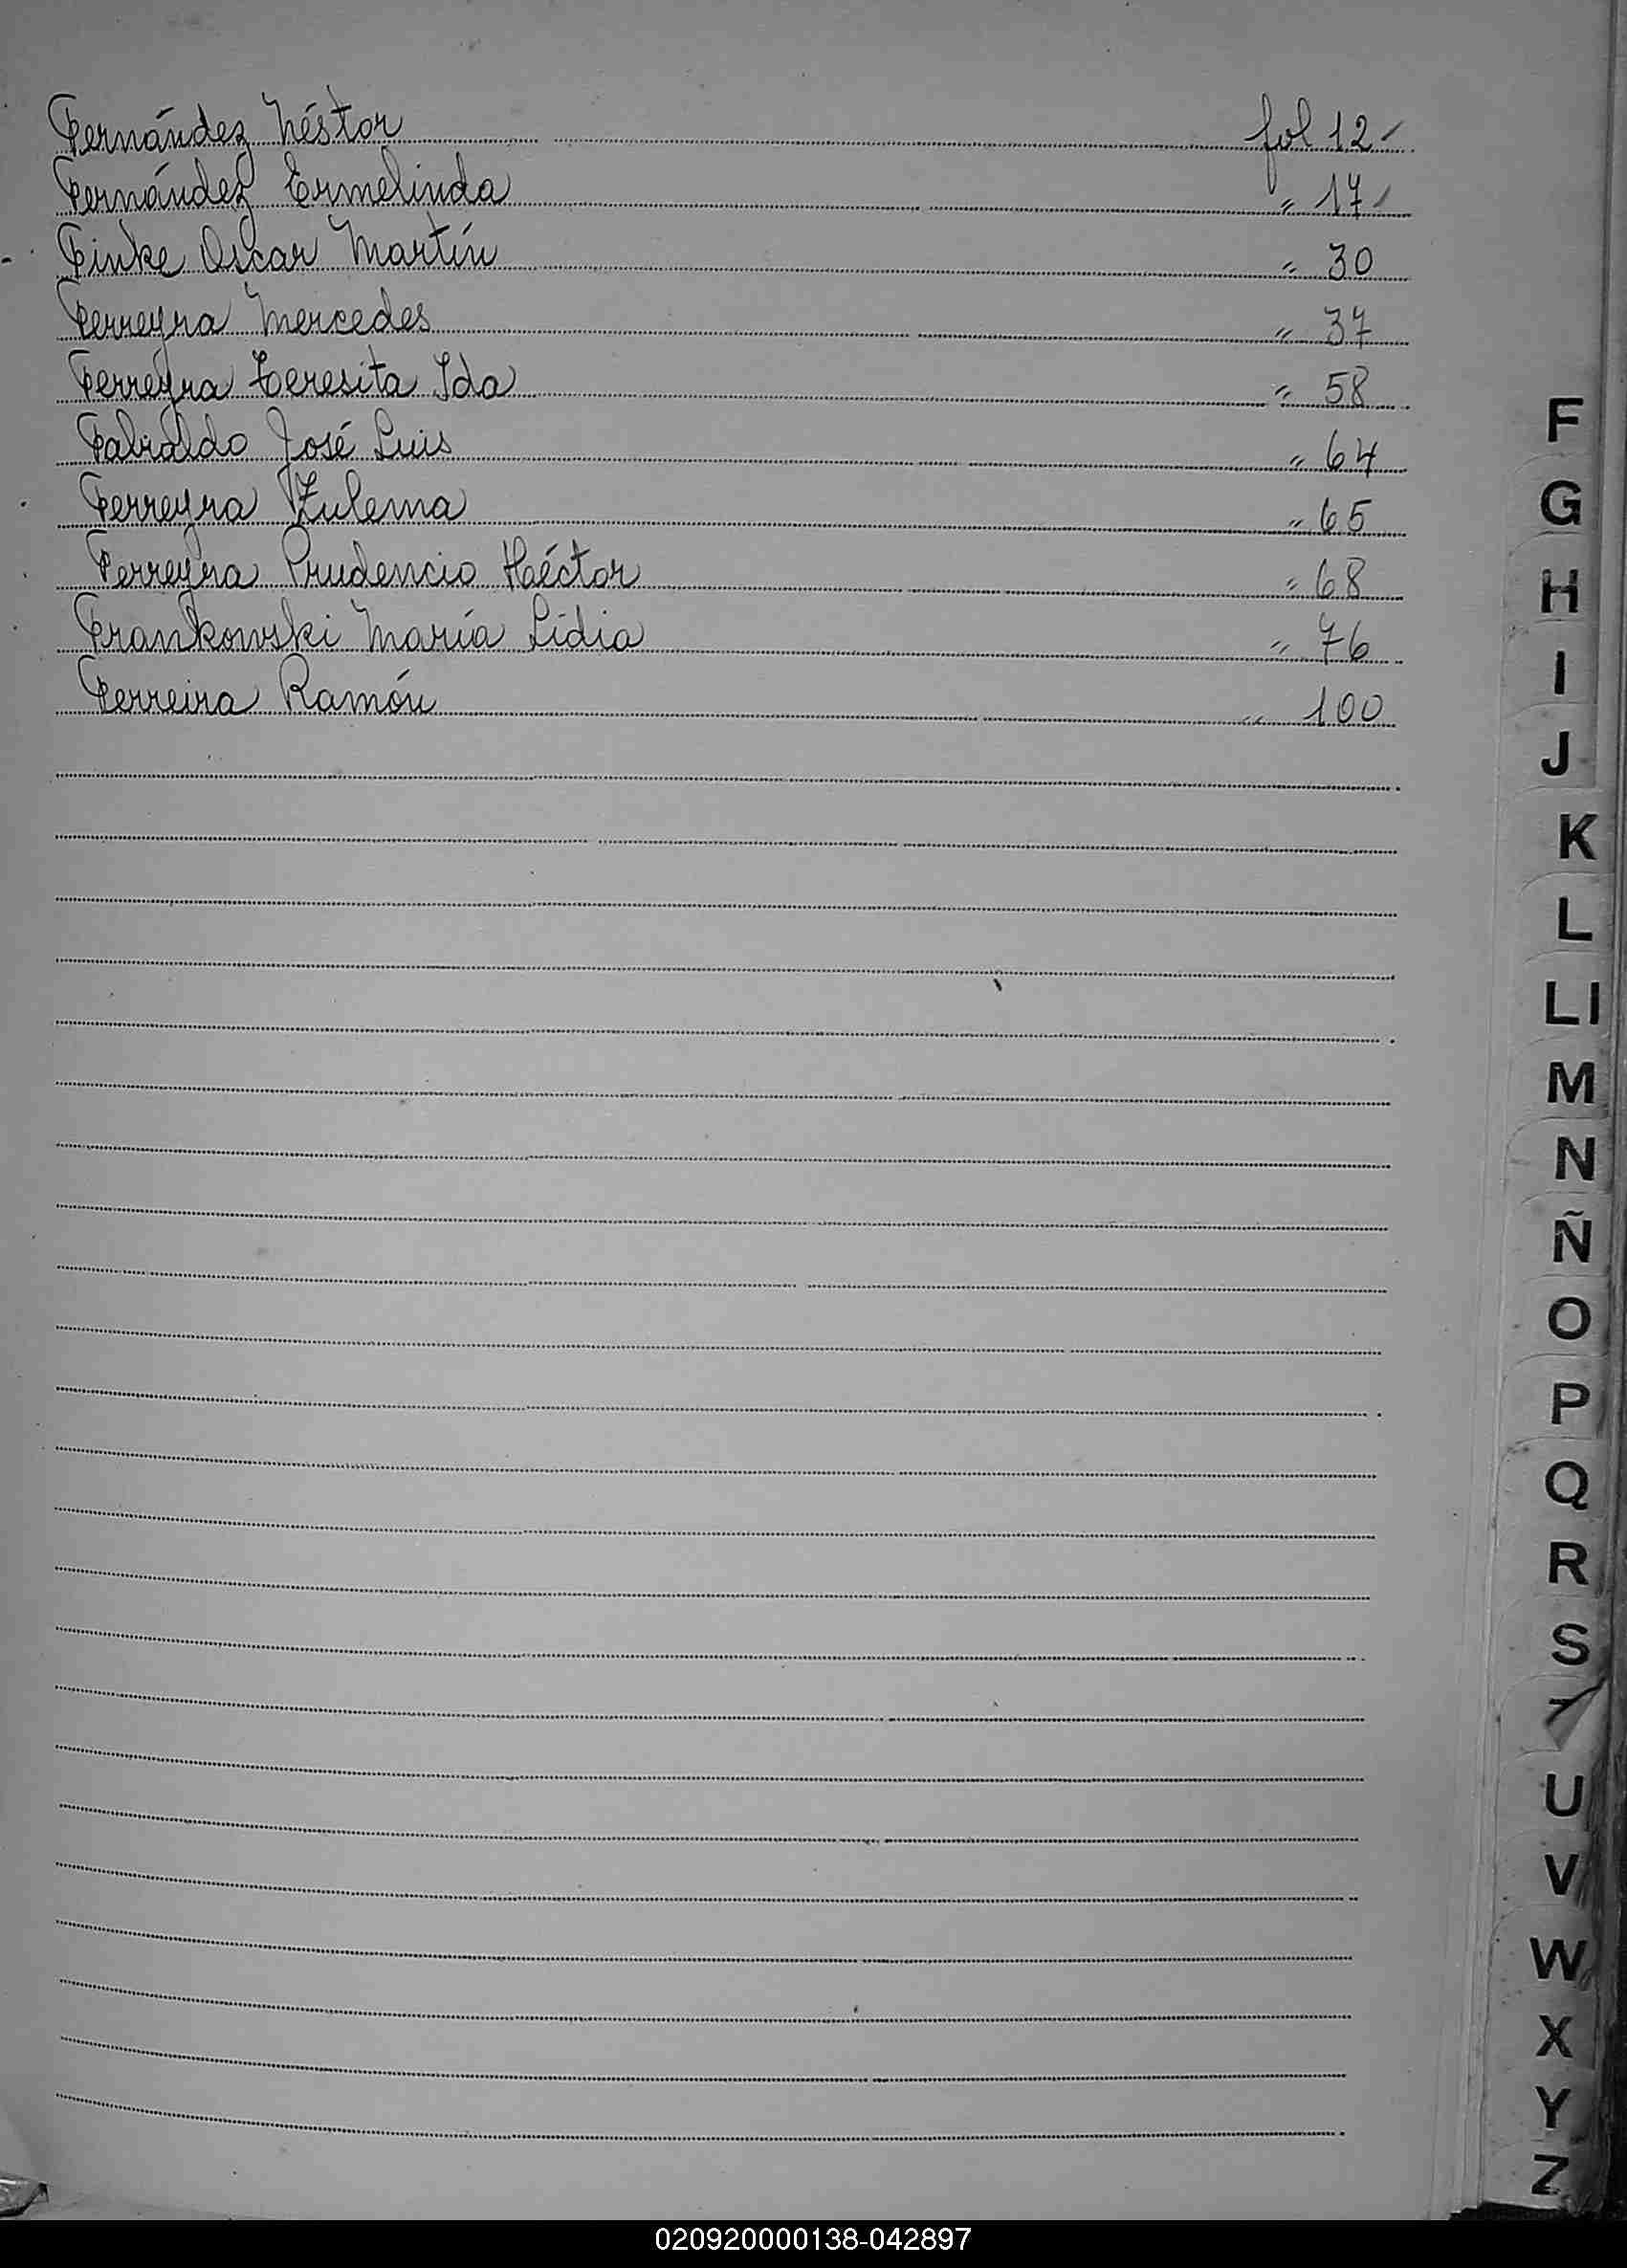 Fernández Néstor fol 12 -
Fernández Ermelinda " 17 -
Finke Oscar Martín " 30
Ferreyra Mercedes " 37
Ferreyra Teresita Ida " 58
José Luis " 64
Ferreyra Zulema " 65
Ferreyra Prudencio Héctor " 68
Frankowski María Lidia " 76
Ferreira Ramón " 100
F
G
H
I
J
K
L
Ll
M
N
Ñ
O
P
Q
R
S
T
U
V
W
X
Y
Z
020920000138-042897